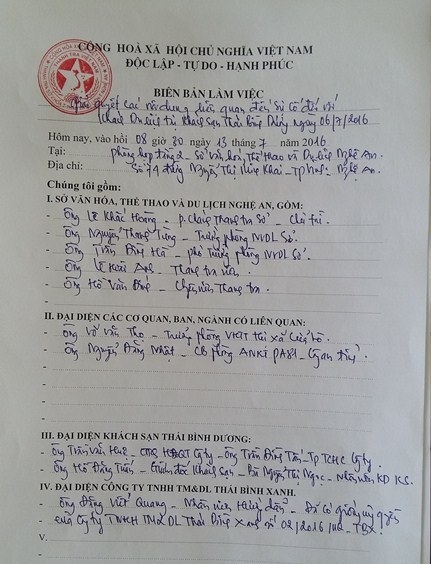 CỘNG HOÀ XÃ HỘI CHỦ NGHĨA VIỆT NAM
ĐỘC LẬP - TỰ DO - HẠNH PHÚC
BIÊN BẢN LÀM VIỆC
Giải quyết các nội dung liên quan đến sự cố đối với
khách Du lịch tại Khách sạn Thái Bình Dương ngày 06/7/2016
Hôm nay, vào hồi 08 giờ 30 ngày 13 tháng 7 năm 2016
Tại: phòng họp tầng 2 - Sở Văn hóa, Thể thao và Du lịch Nghệ An.
Địa chỉ: Số 74 đường Nguyễn Thị Minh Khai - TP Vinh - Nghệ An.
Chúng tôi gồm:
I. SỞ VĂN HÓA, THỂ THAO VÀ DU LỊCH NGHỆ AN, GỒM:
- Ông Lê Khắc - p.Chánh Thanh tra Sở - Chủ trì.
- Ông Nguyễn Thanh Tùng - Trưởng phòng NVDL Sở.
- Ông Trần Đình Hà - phó Trưởng phòng NVDL Sở.
- Ông Lê Hoài Anh - Thanh tra viên.
- Ông Hồ Văn - Chuyên viên Thanh tra.
-
II. ĐẠI DIỆN CÁC CƠ QUAN, BAN, NGÀNH CÓ LIÊN QUAN:
- Ông Võ Văn Thọ - Trưởng phòng VHTT thị xã Cửa Lò.
- Ông Nguyễn Đăng Nhật - CB phòng PA81 - Công an tỉnh.
-
-
-
-
III. ĐẠI DIỆN KHÁCH SẠN THÁI BÌNH DƯƠNG:
- Ông Trần Văn Huê - HĐQT Cty - Ông Trần Đăng - TP TCHC Cty.
- Ông Hồ Đăng Tuấn - Giám đốc Khách sạn - Bà Nguyễn Thị Ngọc - Nhân viên KD KS.
IV. ĐẠI DIỆN CÔNG TY TNHH TM&DL THÁI BÌNH XANH.
- Ông Đặng Viết Quang - Nhân viên Hướng dẫn - Đã có giấy ủy quyền
- của Công ty TNHH TM&DL Thái Bình Xanh số 02/2016/ - TBX.
V.
-